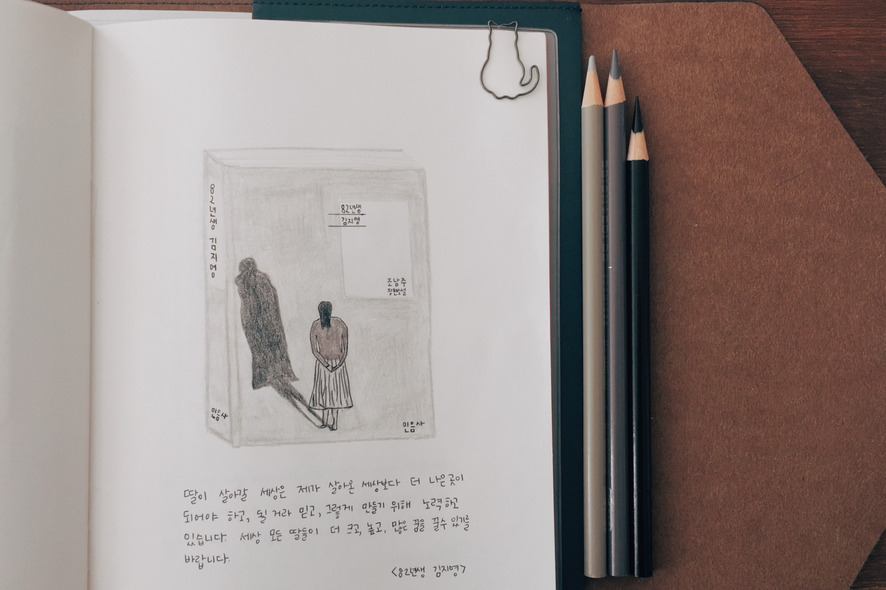 82년생 김지영
민음사
82년생
김지영
조남주
장편소설
민음사
딸이 살아갈 세상은 제가 살아온 세상보다 더 나은 곳이
되어야 하고, 될 거라 믿고, 그렇게 만들기 위해 노력하고
있습니다. 세상 모든 딸들이 더 크고, 높고, 많은 꿈을 꿀 수 있기를
바랍니다.
<82년생 김지영>